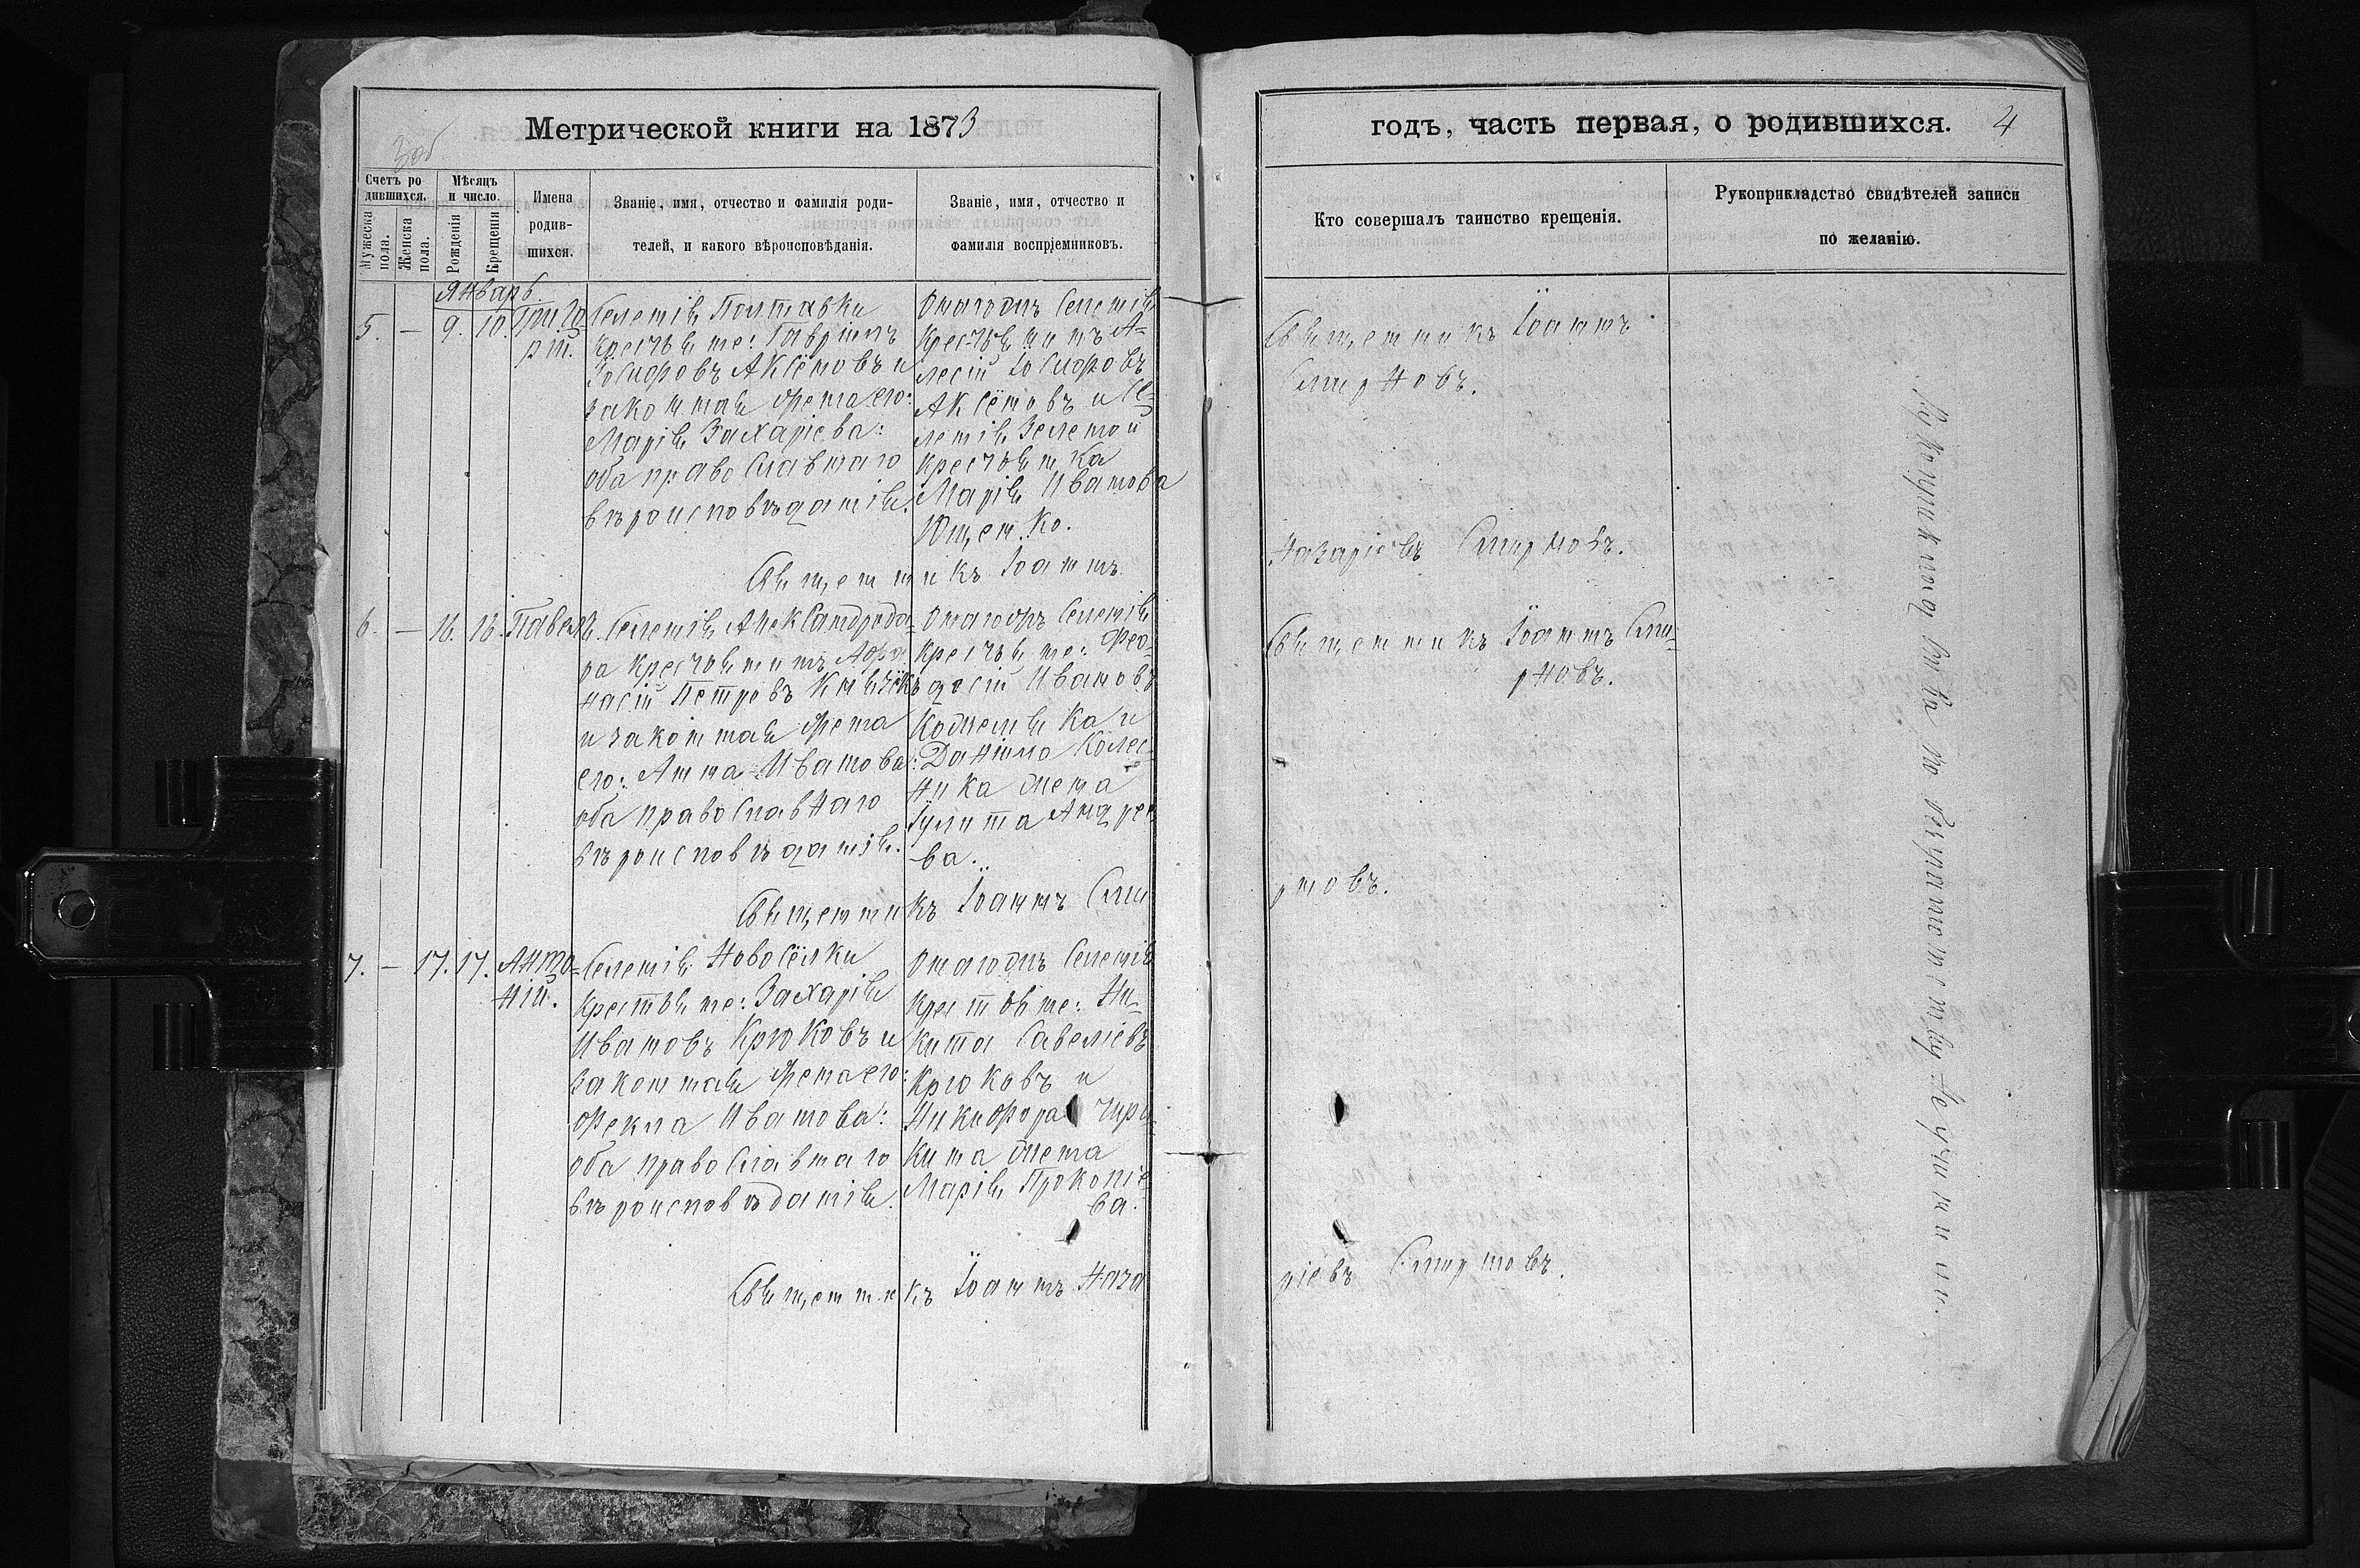 Метрической книги на 1873
Зоб
Счетъ ро-
дившихся.
Мужеска пола.
Женска пола.
Мѣсяцъ
и число.
Рожденія
Крещенія
Имена
родив-
шихся.
Званіе, имя, отчество и фамилія роди-
телей, и какого вѣроисповѣданія.
Званіе, имя, отчество и
фамилія воспріемниковъ.
Январь.
5. — 9. 10. Григо-
рій.
Селенія Полтавки
крестьяне: Гавріилъ
Іосифовъ Аксёновъ и
законная жена его:
Марія Захаріева:
оба православнаго
вѣроисповѣданія.
Отагожъ Селенія
Крестьянинъ А-
лесій Іосифовъ
Аксёновъ и Се-
ленія Зеленой
крестьянка
Марія Иванова
Ющенко.
Священникъ Іоаннъ
6. — 16. 16. Павелъ.
Селенія Александрода-
ра крестьянинъ Афа-
насій Петровъ
и законная жена
его: Анна Иванова:
оба православнаго
вѣроисповѣданія.
Отагожъ Селенія
крестьяне: Фео-
досій Ивановъ
и
Даніила Колес-
ника жена
Іулита Андрее-
ва.
Священникъ Іоаннъ Сми
7. — 17. 17. Анто-
ній.
Селенія Новосёлки
Крестьяне: Захарія
Ивановъ Крюковъ и
законная жена его:
Фекла Иванова:
оба православнаго
вѣроисповѣданія.
Отагожъ Селенія
Крестьяне: Ни-
кита Савеліевъ
Крюковъ и
Никифора Чири-
кина жена
Марія Прокопіе-
ва.
Священникъ Іоаннъ Наза
годъ, часть первая, о родившихся. 4
Кто совершалъ таинство крещенія.
Рукоприкладство свидѣтелей записи
по желанію.
Священникъ Іоаннъ
Смирновъ.
Назаріевъ Смирновъ.
Священникъ Іоаннъ Сми-
рновъ.
рновъ.
ріевъ Смирновъ.